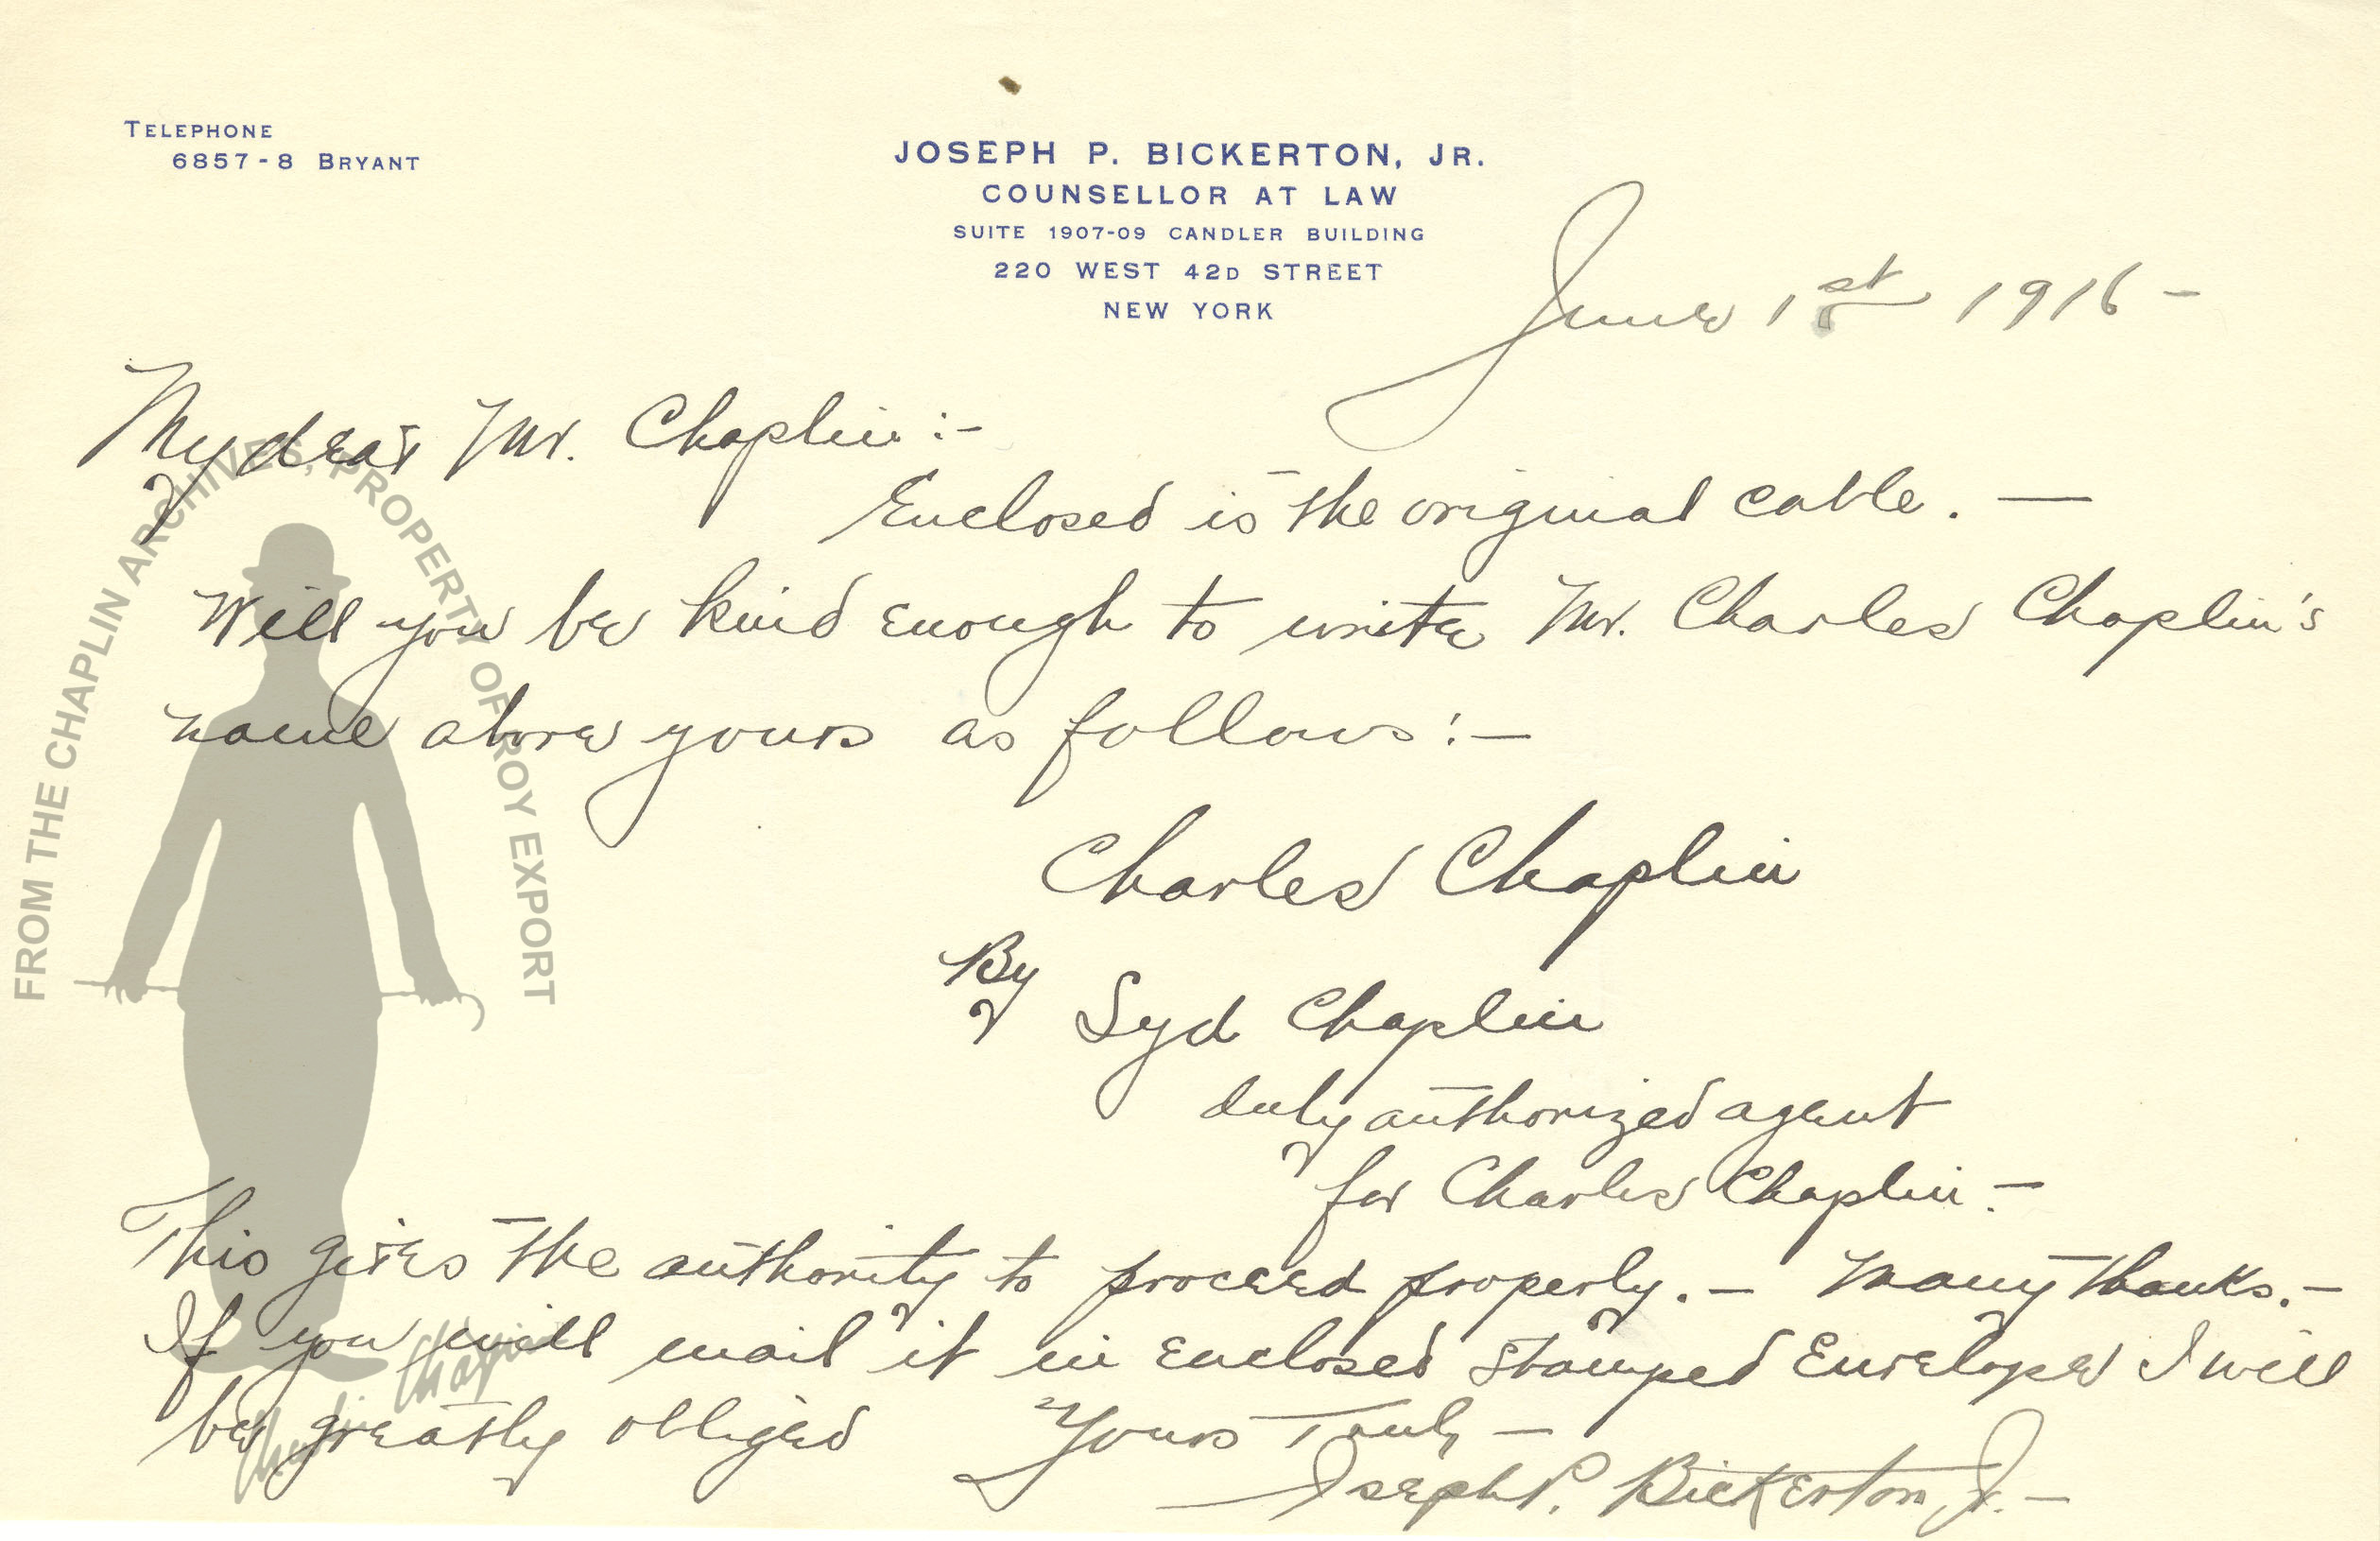 TELEPHONE
6857-8 BRYANT
JOSEPH P. BICKERTON, JR.
COUNSELLOR AT LAW
SUITE 1907-09 CANDLER BUILDING
220 WEST 42D STREET
NEW YORK
June 1st 1916 -
My dear Mr. Chaplin :-
Enclosed is the original cable. —
Will you be kind enough to write Mr. Charles Chaplin's
name above yours as follows :-
Charles Chaplin
By Syd Chaplin
duly authorized agent
for Charles Chaplin -
This gives the authority to proceed properly. - Many thanks. -
If you will mail it in enclosed stamped envelope I will
be greatly obliged
Yours Truly -
Joseph P. Bickerton, Jr. -
FROM THE CHAPLIN ARCHIVES, PROPERTY OF ROY EXPORT
Charlie Chaplin